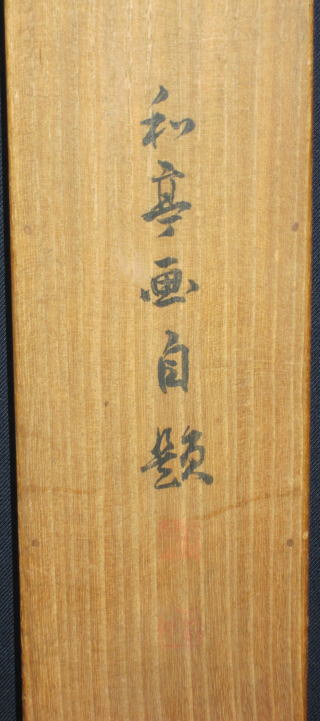 和亭画自題